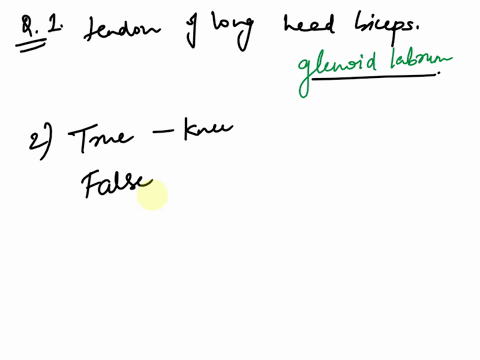 Q.1. tendon of long head biceps.
glenoid labrum
2) True - Knee
False